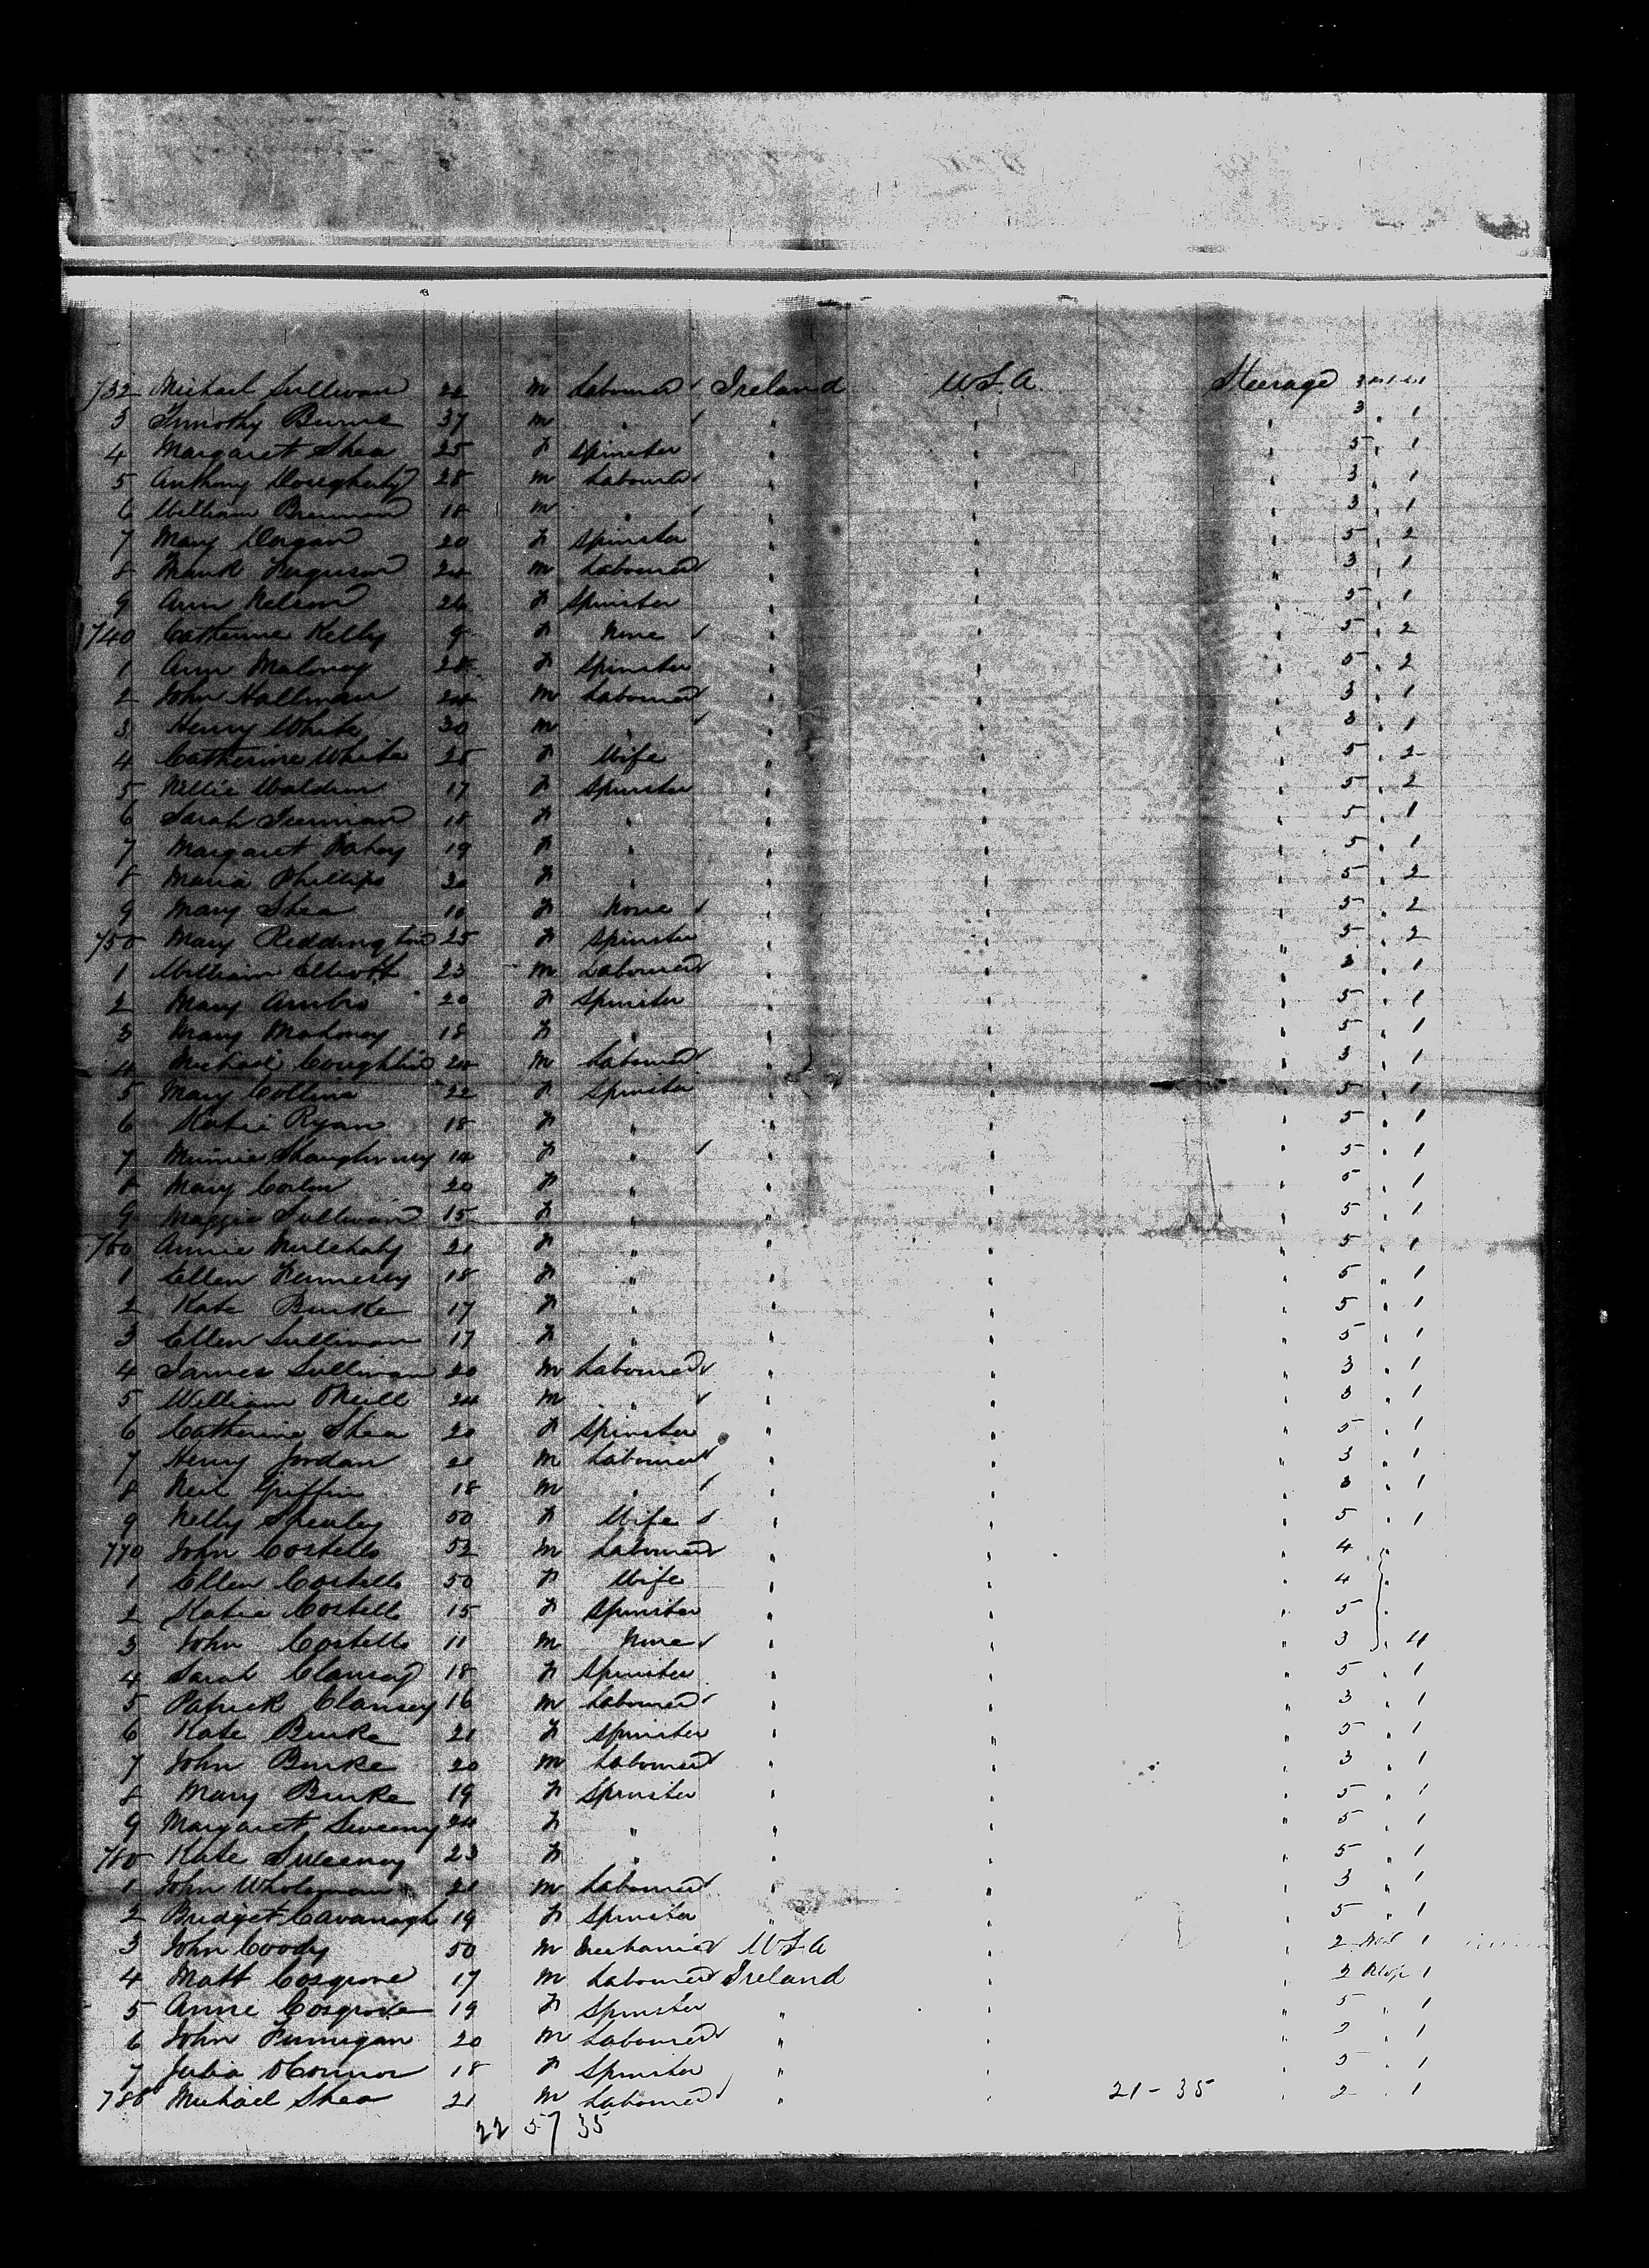 732 Michael Sullivan 22 m Labourer Ireland U.S.A. Steerage 3 1
3 Timothy Burns 37 m " " " " 3 " 1
4 Margaret Shea 25 F Spinster " " " 5 " 1
5 Anthony Dougherty 28 m Labourer " " " 3 " 1
6 William Brennan 18 m " " " " 3 " 1
7 Mary 20 F Spinster " " " 5 " 2
8 Frank Ferguson 24 m Labourer " " " 3 " 1
9 Ann Nelson 26 F Spinster " " " 5 " 1
740 Catherine Kelly 9 F None " " " 5 " 2
1 Ann Maloney 28 F Spinster " " " 5 " 2
2 John 24 m Labourer " " " 3 " 1
3 Henry White 30 m " " " " 3 " 1
4 Catherine White 25 F Wife " " " 5 " 2
5 Nellie Waldron 17 F Spinster " " " 5 " 2
6 Sarah 18 F " " " " 5 " 1
7 Margaret Fahey 19 F " " " " 5 " 1
8 Maria Phillips 20 F " " " " 5 " 2
9 Mary Shea 10 F None " " " 5 " 2
750 Mary Reddington 25 F Spinster " " " 5 " 2
1 William Elliott 23 m Labourer " " " 3 " 1
2 Mary 20 F Spinster " " " 5 " 1
3 Mary Mahoney 18 F " " " " 5 " 1
4 Michael Coughlin 24 m Labourer " " " 3 " 1
5 Mary Collins 22 F Spinster " " " 5 " 1
6 Katie Ryan 18 F " " " " 5 " 1
7 Minnie Shaughnessy 14 F " " " " 5 " 1
8 Mary 20 F " " " " 5 " 1
9 Maggie Sullivan 15 F " " " " 5 " 1
760 Annie Mulchahy 21 F " " " " 5 " 1
1 Ellen Hennessy 18 F " " " " 5 " 1
2 Kate Burke 17 F " " " " 5 " 1
3 Ellen Sullivan 17 F " " " " 5 " 1
4 James Sullivan 20 m Labourer " " " 3 " 1
5 William O'Neill 24 m " " " " 3 " 1
6 Catherine Shea 20 F Spinster " " " 5 " 1
7 Henry Jordan 21 m Labourer " " " 3 " 1
8 Neil Griffin 18 m " " " " 3 " 1
9 Nelly 50 F Wife " " " 5 " 1
770 John Costello 52 m Labourer " " " 4 "
1 Ellen Costello 50 F Wife " " " 4 "
2 Katie Costello 15 F Spinster " " " 5 "
3 John Costello 11 m None " " " 3 " 4
4 Sarah Clansey 18 F Spinster " " " 5 " 1
5 Patrick Clansey 16 m Labourer " " " 3 " 1
6 Kate Burke 21 F Spinster " " " 5 " 1
7 John Burke 20 m Labourer " " " 3 " 1
8 Mary Burke 19 F Spinster " " " 5 " 1
9 Margaret Sweeny 24 F " " " " 5 " 1
780 Kate Sweeney 23 F " " " " 5 " 1
1 John 21 m Labourer " " " 3 " 1
2 Bridget Cavanagh 19 F Spinster " " " 5 " 1
3 John Coody 50 m Mechanic U.S.A " " 2 1
4 Matt Cosgrove 17 m Labourer Ireland " " 2 1
5 Annie Cosgrove 19 F Spinster " " " 5 " 1
6 John Finnigan 20 m Labourer " " " 2 " 1
7 Julia O'Connor 18 F Spinster " " " 5 " 1
788 Michael Shea 21 m Labourer " " 21-35 " 2 " 1
22 57 35